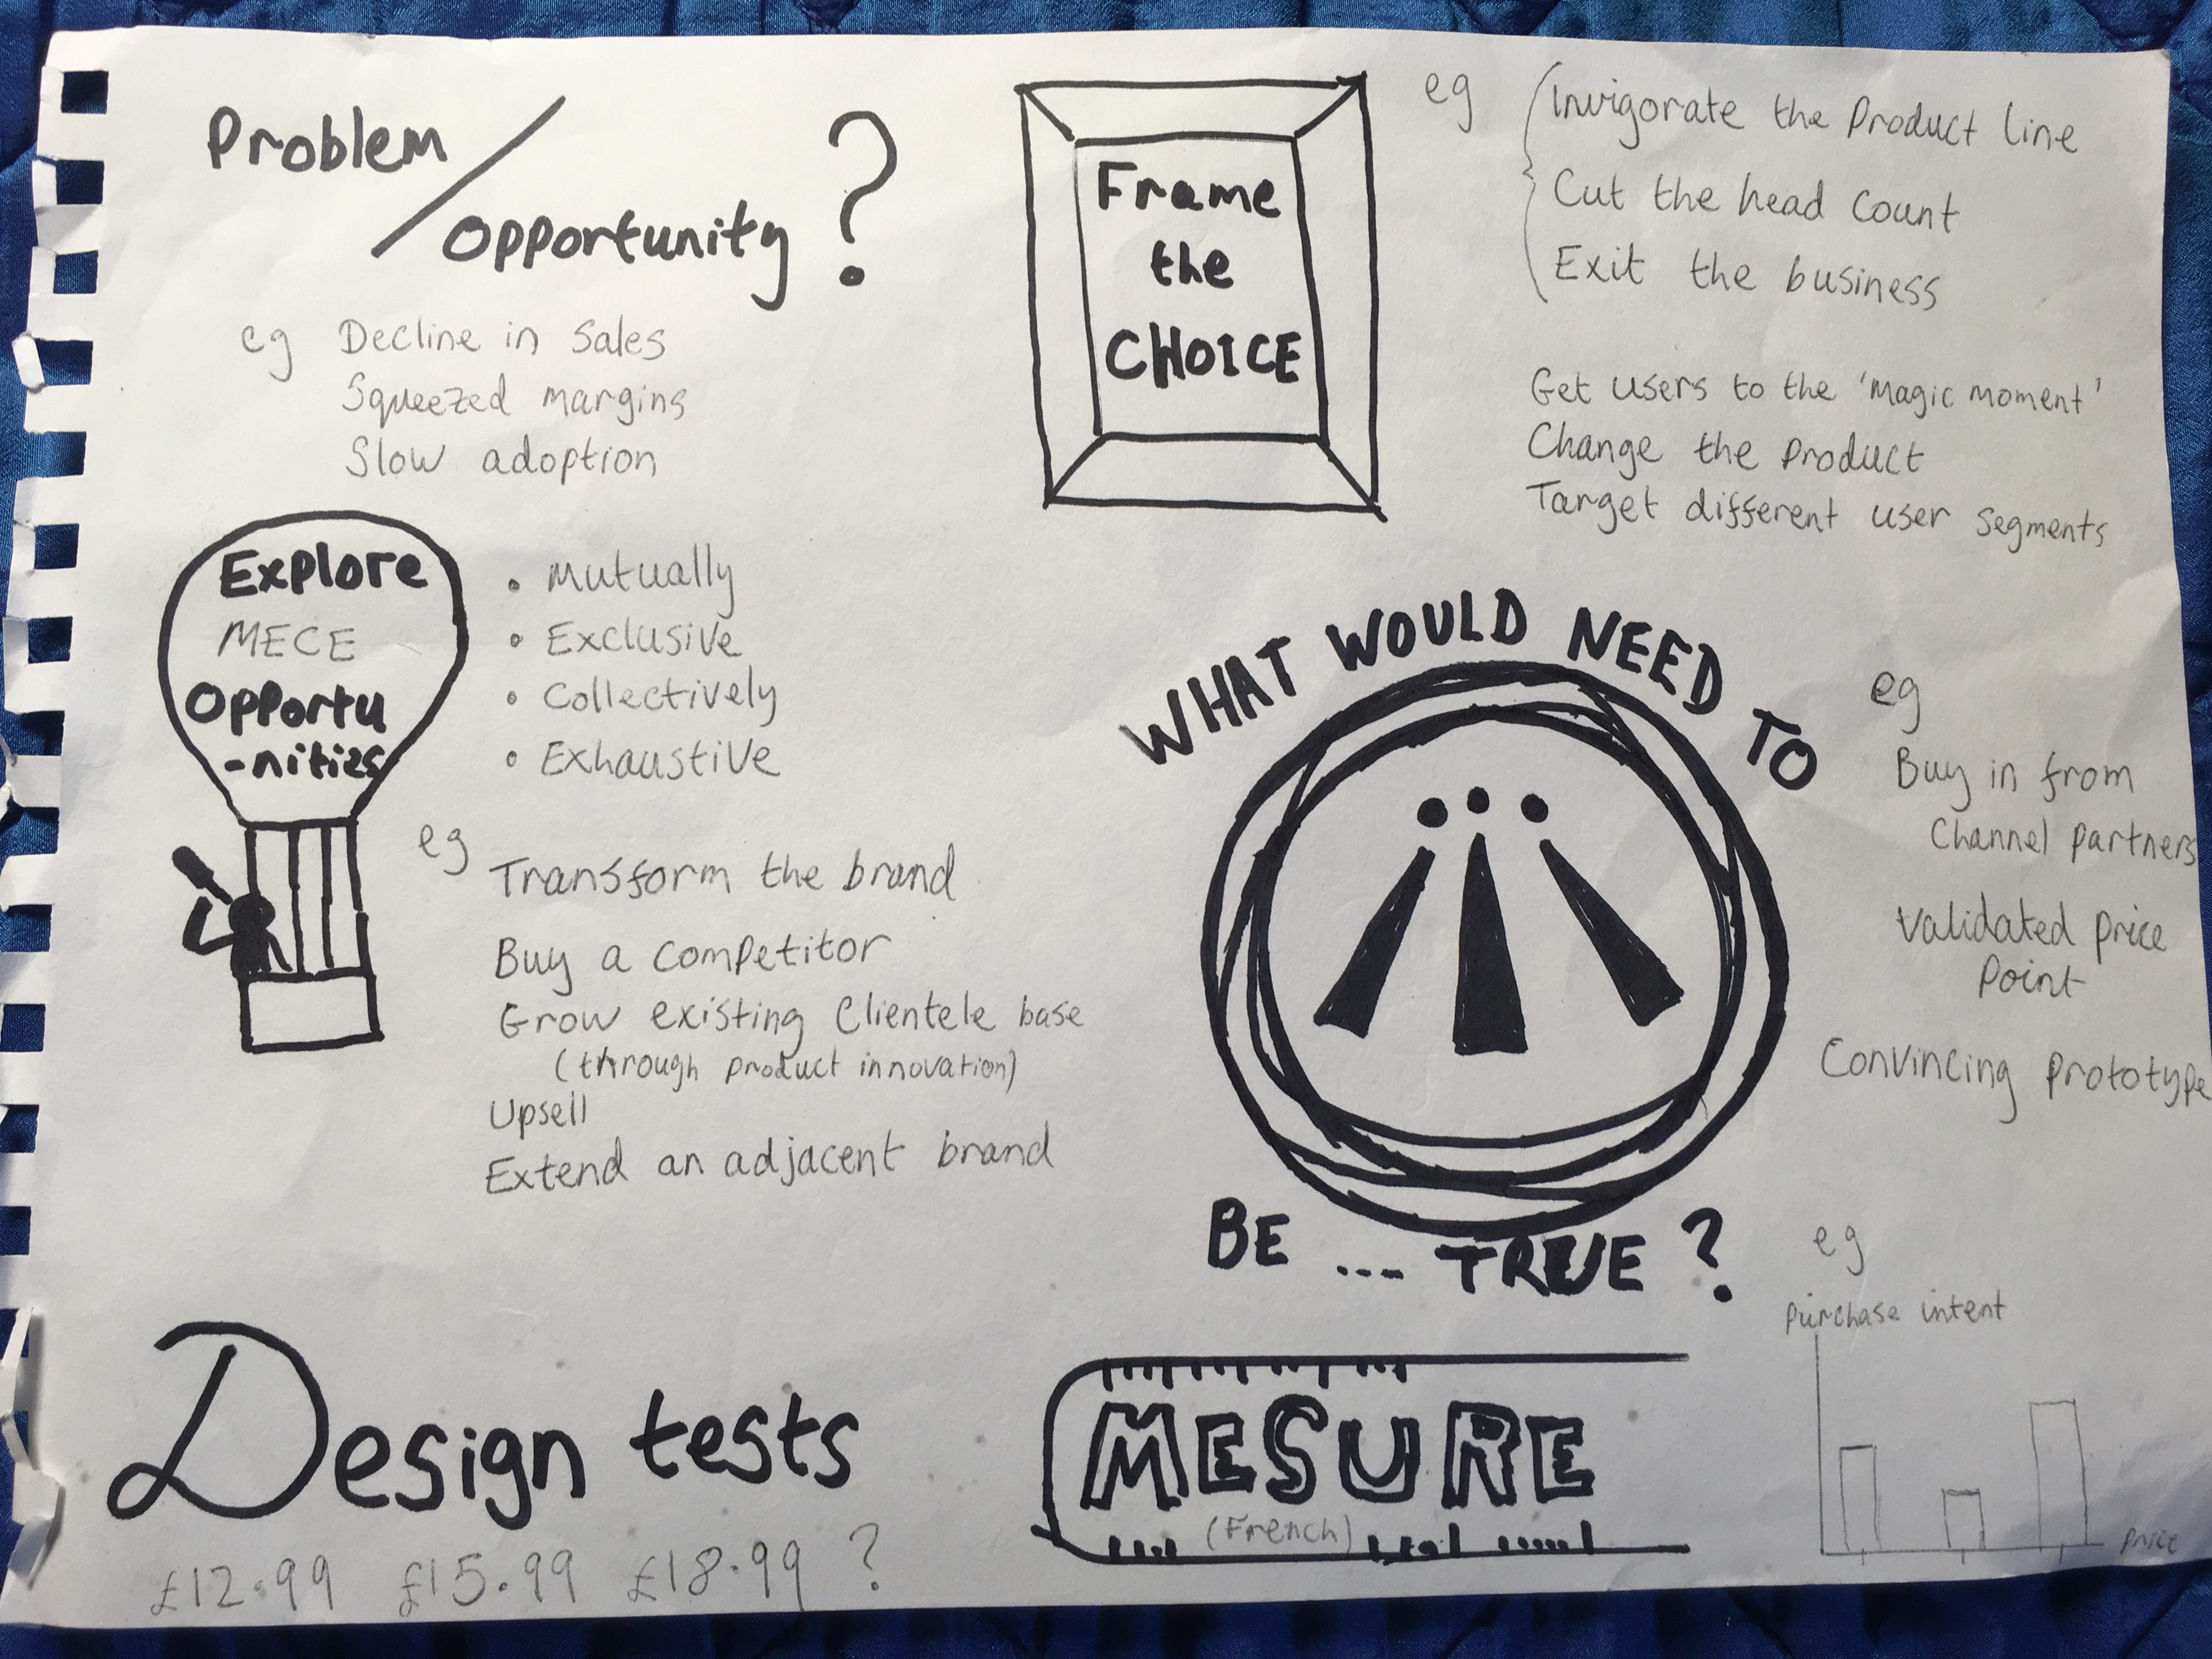 Problem
/
Opportunity ?
eg Decline in Sales
Squeezed margins
Slow adoption
Frame
the
CHOICE
eg
Invigorate the Product line
Cut the head Count
Exit the business
Get users to the 'Magic Moment'
Change the Product
Target different user segments
Explore
MECE
Opportu
-nities
• Mutually
• Exclusive
• Collectively
• Exhaustive
eg
Transform the brand
Buy a competitor
Grow existing Clientele base
(through product innovation)
Upsell
Extend an adjacent brand
WHAT WOULD NEED TO
BE ... TRUE ?
eg
Buy in from
Channel partners
Validated price
Point
Convincing prototype
Design tests
£12.99 £15.99 £18.99 ?
MESURE
(French)
eg
Purchase intent
price